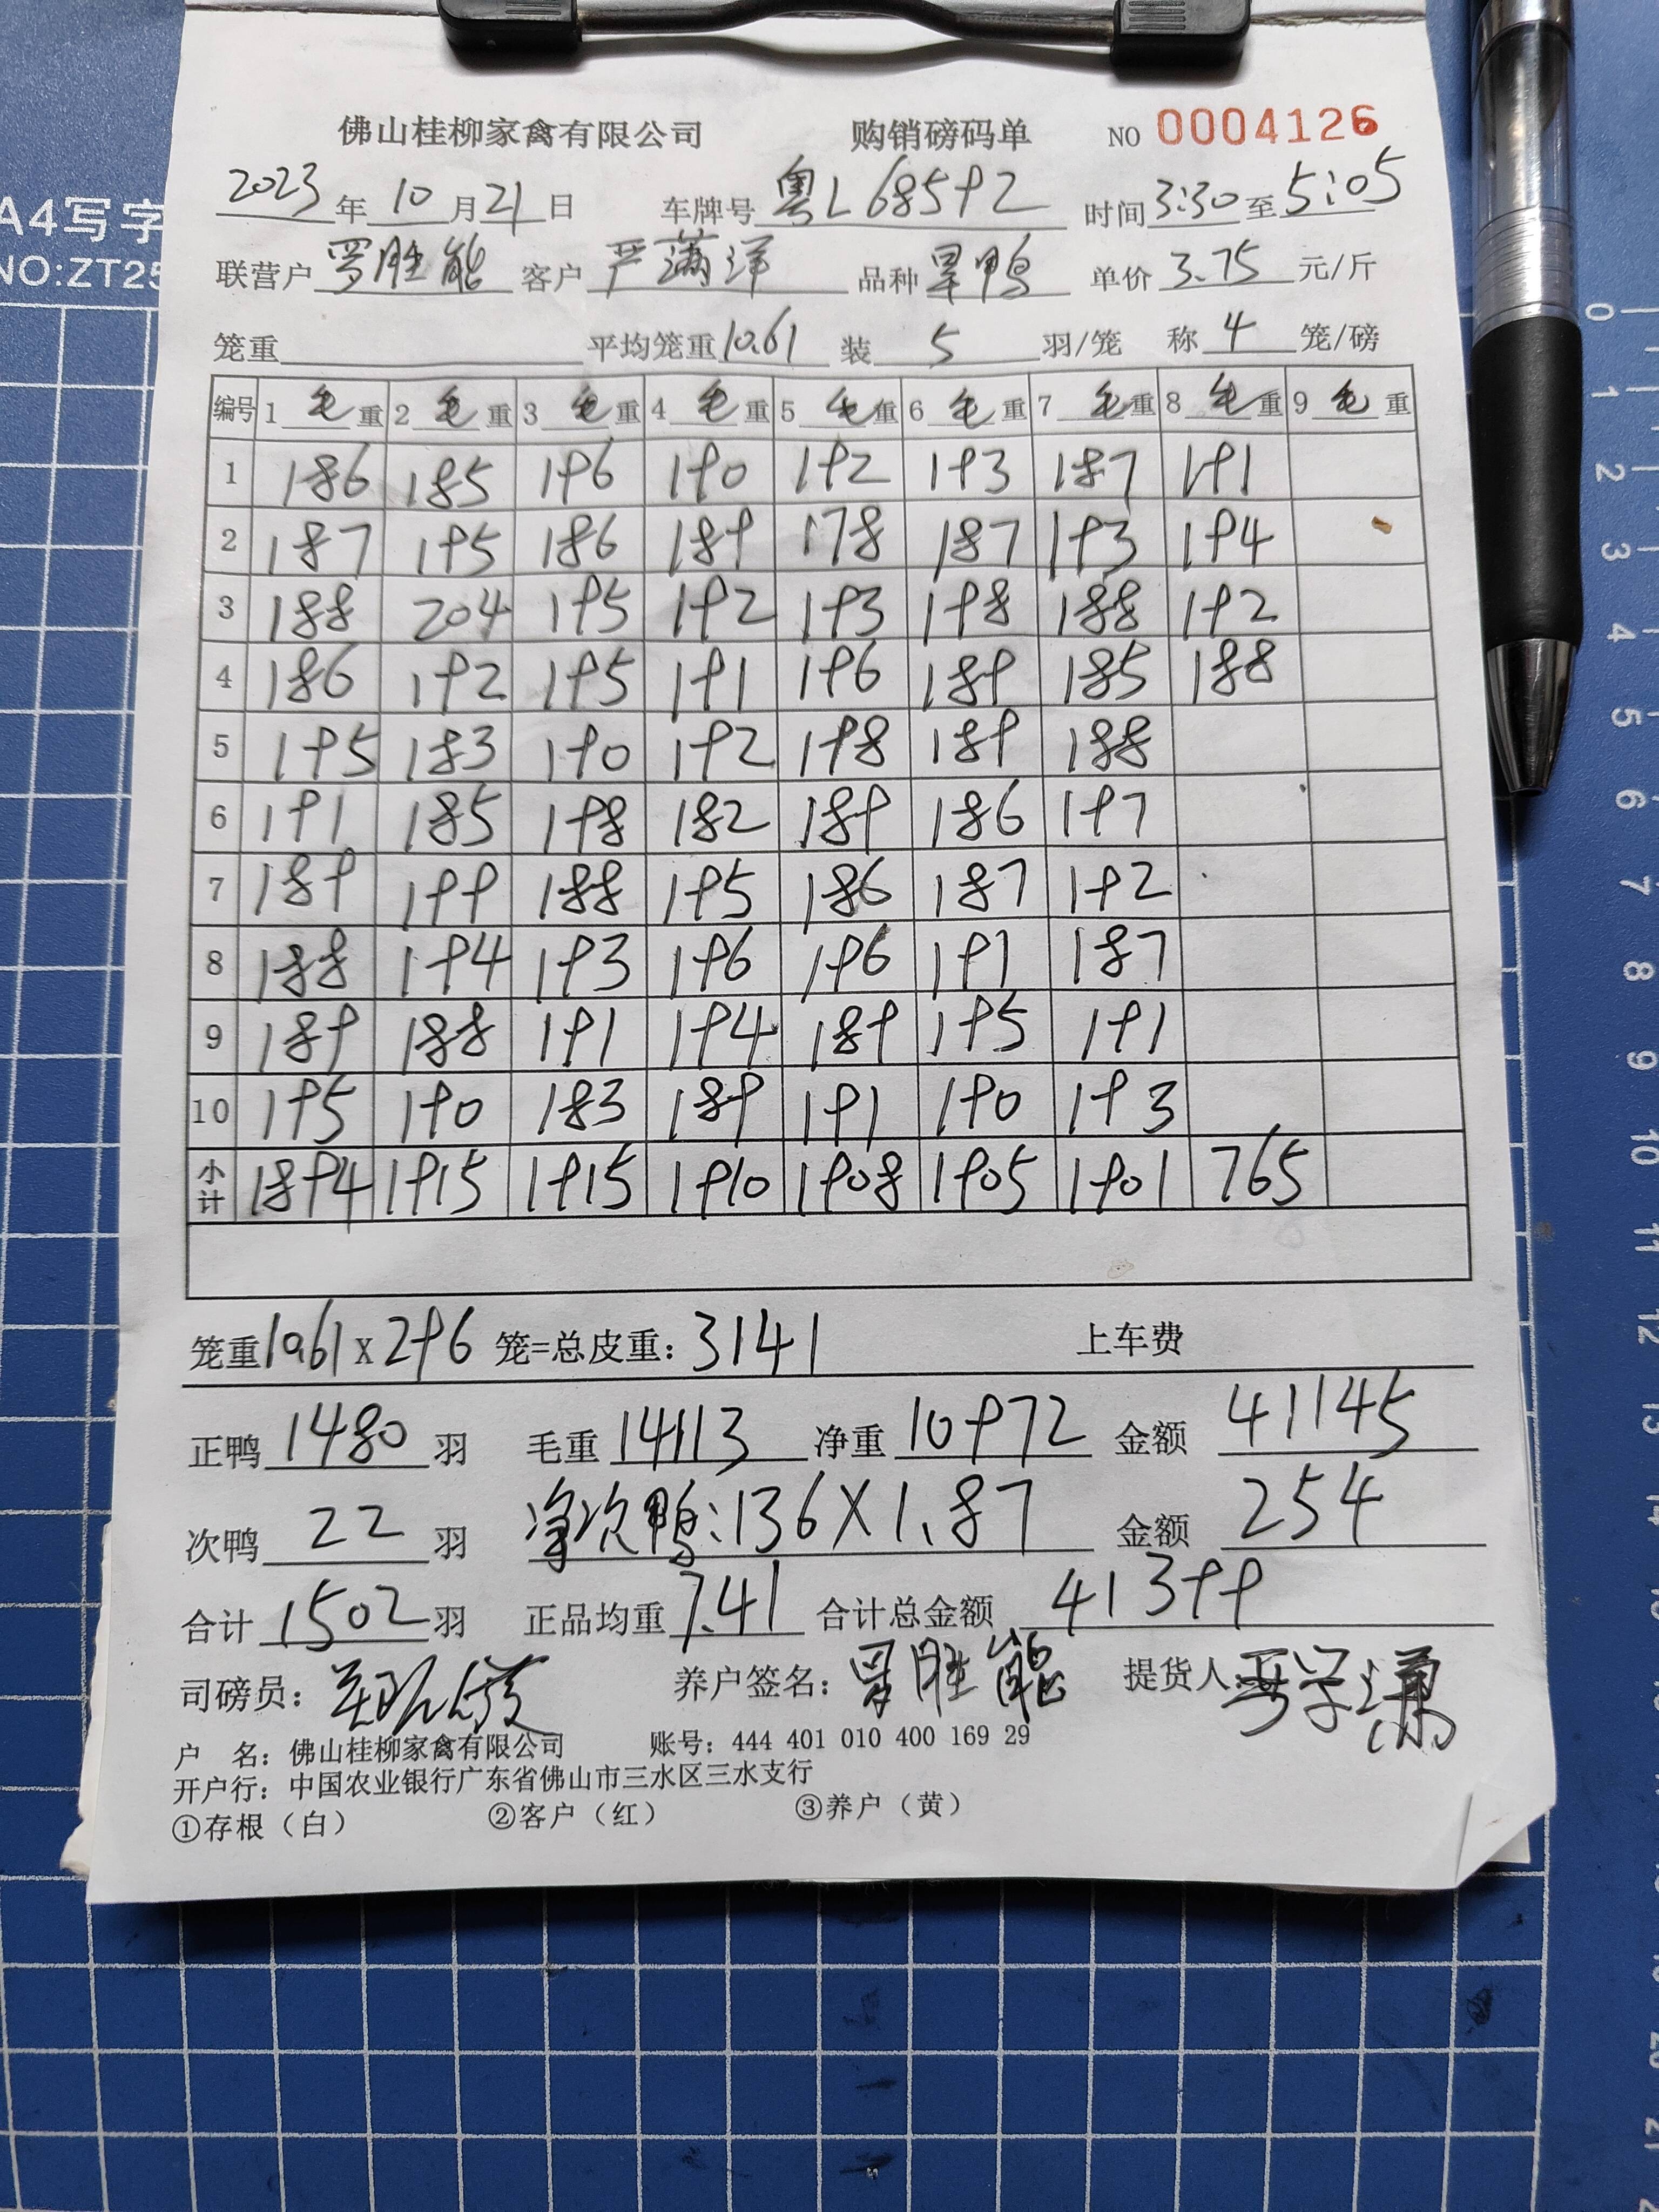 佛山桂柳家禽有限公司 购销磅码单 NO 0004126
2023年10月21日 车牌号 粤L68592 时间3:30至5:05
联营户 罗胜能 客户 严满洋 品种 旱鸭 单价 3.75 元/斤
笼重 平均笼重10.61 装 5 羽/笼 称 4 笼/磅
编号 1 毛重 2 毛重 3 毛重 4 毛重 5 毛重 6 毛重 7 毛重 8 毛重 9 毛重
1 186 185 196 190 192 193 187 191
2 187 195 186 189 178 187 193 194
3 188 204 195 192 193 198 188 192
4 186 192 195 191 196 189 185 188
5 195 183 190 192 198 189 188
6 191 185 198 182 189 186 197
7 189 199 188 195 186 187 192
8 188 194 193 196 196 191 187
9 189 188 191 194 189 195 191
10 195 190 183 189 191 190 193
小计 1894 1915 1915 1910 1908 1905 1901 765
笼重10.61 x 296 笼=总皮重: 3141 上车费
正鸭 1480 羽 毛重 14113 净重 10972 金额 41145
次鸭 22 羽 净次鸭:136X1.87 金额 254
合计 1502 羽 正品均重 7.41 合计总金额 41399
司磅员: 养户签名: 罗胜能 提货人
户 名: 佛山桂柳家禽有限公司 账号: 444 401 010 400 169 29
开户行: 中国农业银行广东省佛山市三水区三水支行
①存根（白） ②客户（红） ③养户（黄）
A4写字
NO:ZT25
0
1
2
3
4
5
6
7
8
9
10
11
12
13
14
15